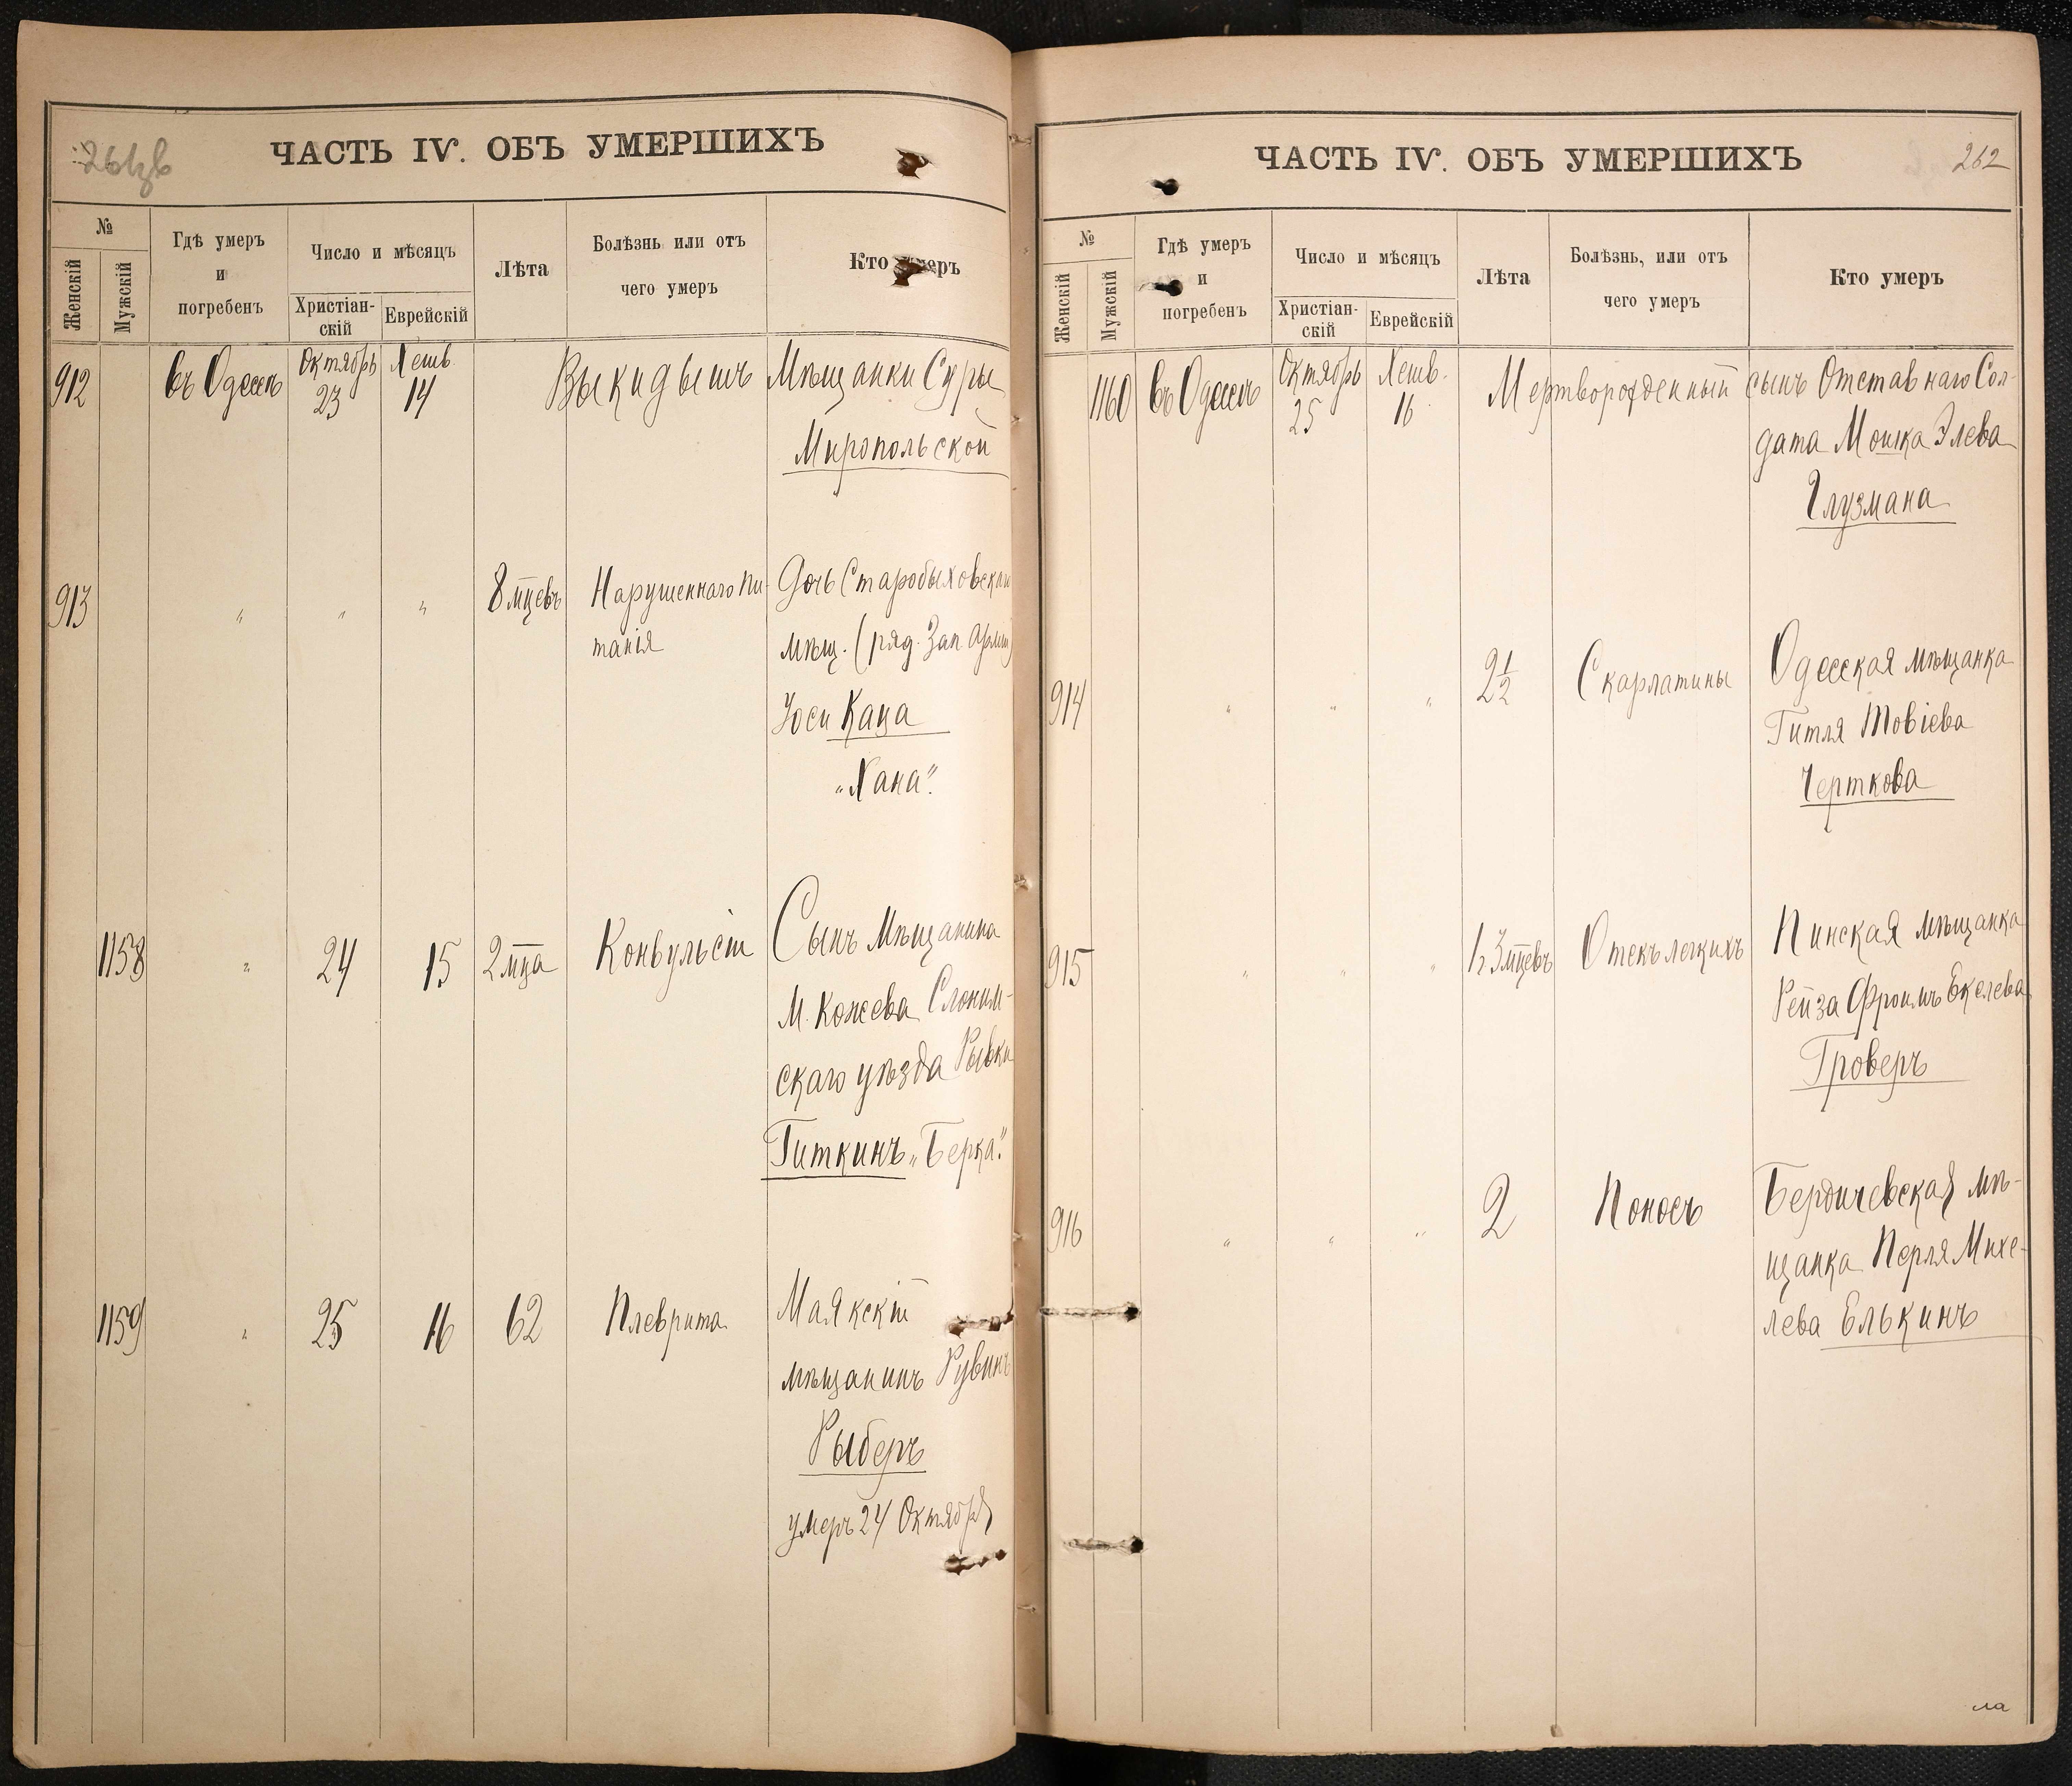 261зв
ЧАСТЬ IV. ОБЪ УМЕРШИХЪ
№
Женскій
Мужскій
Гдѣ умеръ
и
погребенъ
Число и мѣсяцъ
Христіан-
скій
Еврейскій
Лѣта
Болѣзнь или отъ
чего умеръ
Кто умеръ
912 въ Одессѣ Октябрь 23 Хешв. 14 Выкидышъ Мѣщанки Суры
Миропольской
913 " " " 8 мцевъ Нарушеннаго пи- Дочь Старобыховскаго
танія мѣщ. (ряд. Зап. Арміи)
Іоси Каца
"Хана".
1158 " 24 15 2 мца Конвульсіи Сынъ Мѣщанина
М. Кожева Слоним-
скаго уѣзда Рывки
Гиткинъ "Берка".
1159 " 25 16 62 Плеврита Маякскій
мѣщанинъ Рувинъ
Рыберъ
умеръ 24 Октября
262
ЧАСТЬ IV. ОБЪ УМЕРШИХЪ
№
Женскій
Мужскій
Гдѣ умеръ
и
погребенъ
Число и мѣсяцъ
Христіан-
скій
Еврейскій
Лѣта
Болѣзнь, или отъ
чего умеръ
Кто умеръ
1160 въ Одессѣ Октябрь 25 Хешв. 16 Мертворожденный сынъ Отставнаго Сол-
дата Мошка Элева
Глузмана
914 " " " 2 1/2 Скарлатины Одесская мѣщанка
Гитля Товіева
Черткова
915 " " " 1 г 3 мцевъ Отекъ легкихъ Пинская мѣщанка
Рейза Фроимъ Екелева
Гроверъ
916 " " " 2 Поносъ Бердичевская мѣ-
щанка Перля Михе-
лева Елькинъ